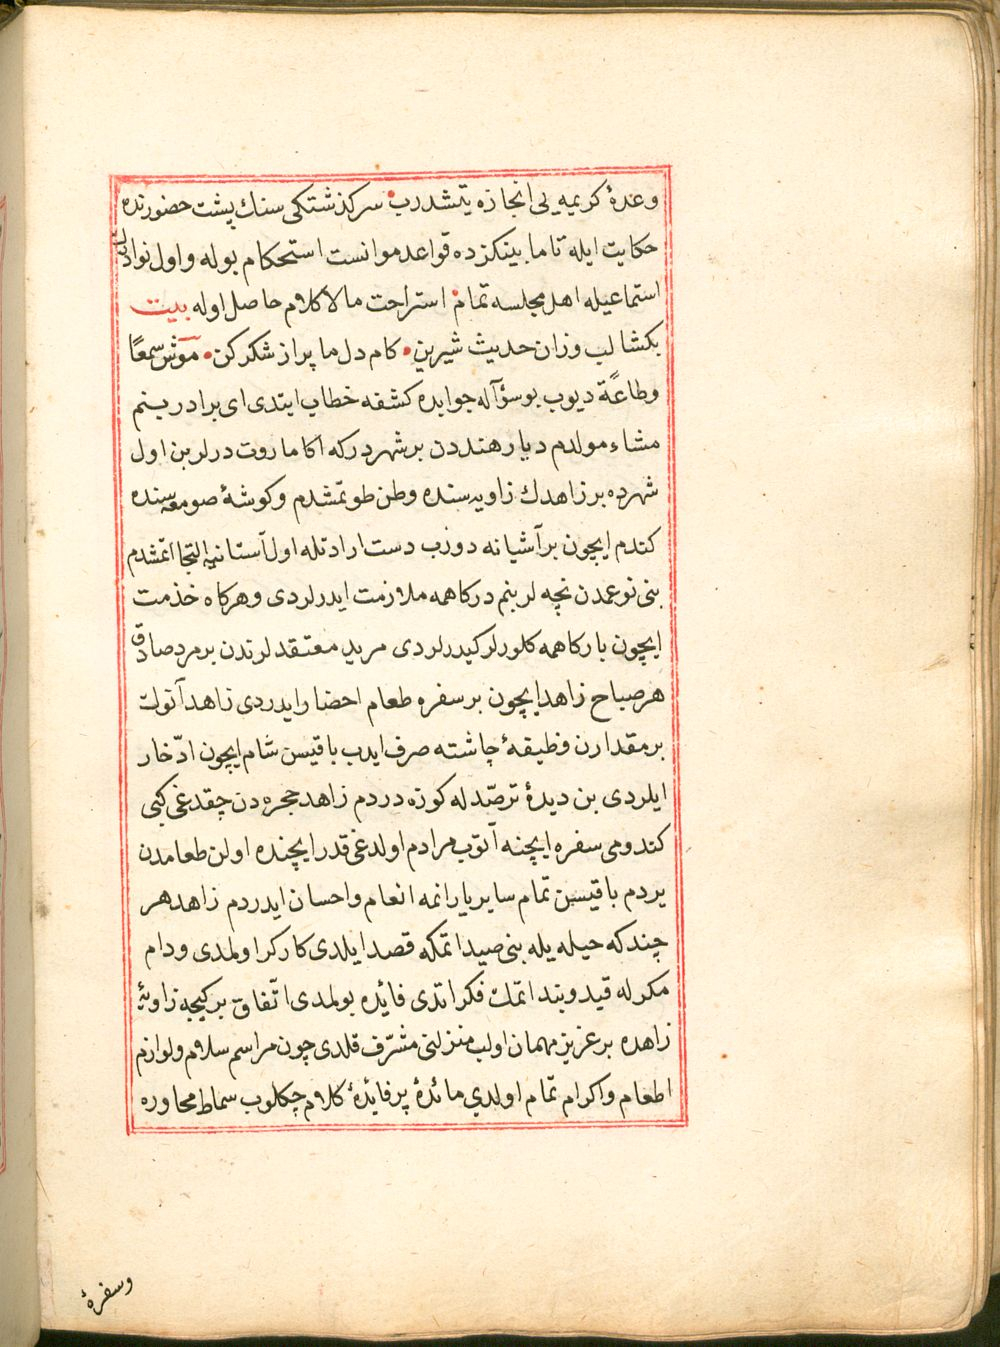 وعدهٔ كريمه يى انجازه يتشدرب سركذشتكى سنك پشت حضورنده
حكايت ايله تا ما بينكزده قواعد موانست استحكام بوله واول نوادرك
استماعيله اهل مجلسه تمام استراحت مالاكلام حاصل اوله بيت
بكشا لب وزان حديث شيرين كام دل ما پر از شكر كن موش سمعًا
وطاعًة ديوب بو سؤآله جوابده كشفه خطاب ايتدى اى برادر بنم
مشاء مولدم ديار هنددن بر شهردركه اكا ماروت درلر بن اول
شهرده بر زاهدك زاويه سنده وطن طوتمشدم وكوشهٔ صومعه سنده
كندم ايچون بر آشيانه دوزب دست ارادتله اول آستانيه التجا اتمشدم
بنى نوعمدن نچه لر بنم دركاهمه ملازمت ايدرلردى وهركاه خذمت
ايچون باركاهمه كلورلر كيدرلردى مريد معتقدلرندن بر مرد صادق
هر صباح زاهد ايچون بر سفره طعام احضار ايدردى زاهد آنوك
بر مقدارن وظيفهٔ چاشته صرف ايدب باقيسن شام ايچون ادّخار
ايلردى بن ديدهٔ ترصّدله كوزه دردم زاهد حجره دن چقدغى كبى
كندومى سفره ايچنه آتوب مرادم اولدغى قدر ايچنده اولن طعامدن
يردم باقيسن تمام ساير يارانمه انعام واحسان ايدردم زاهد هر
چند كه حيله يله بنى صيد اتمكه قصد ايلدى كاركر اولمدى ودام
مكرله قيد وبند اتمك فكر اتدى فائده بولمدى اتّفاق بر كيجه زاويهٔ
زاهده بر عزيز مهمان اولب منزلنى مشرّف قلدى چون مراسم سلام ولوازم
اطعام واكرام تمام اولدي مائدهٔ پر فائدهٔ كلام چكلوب سماط محاوره
وسفرهٔ